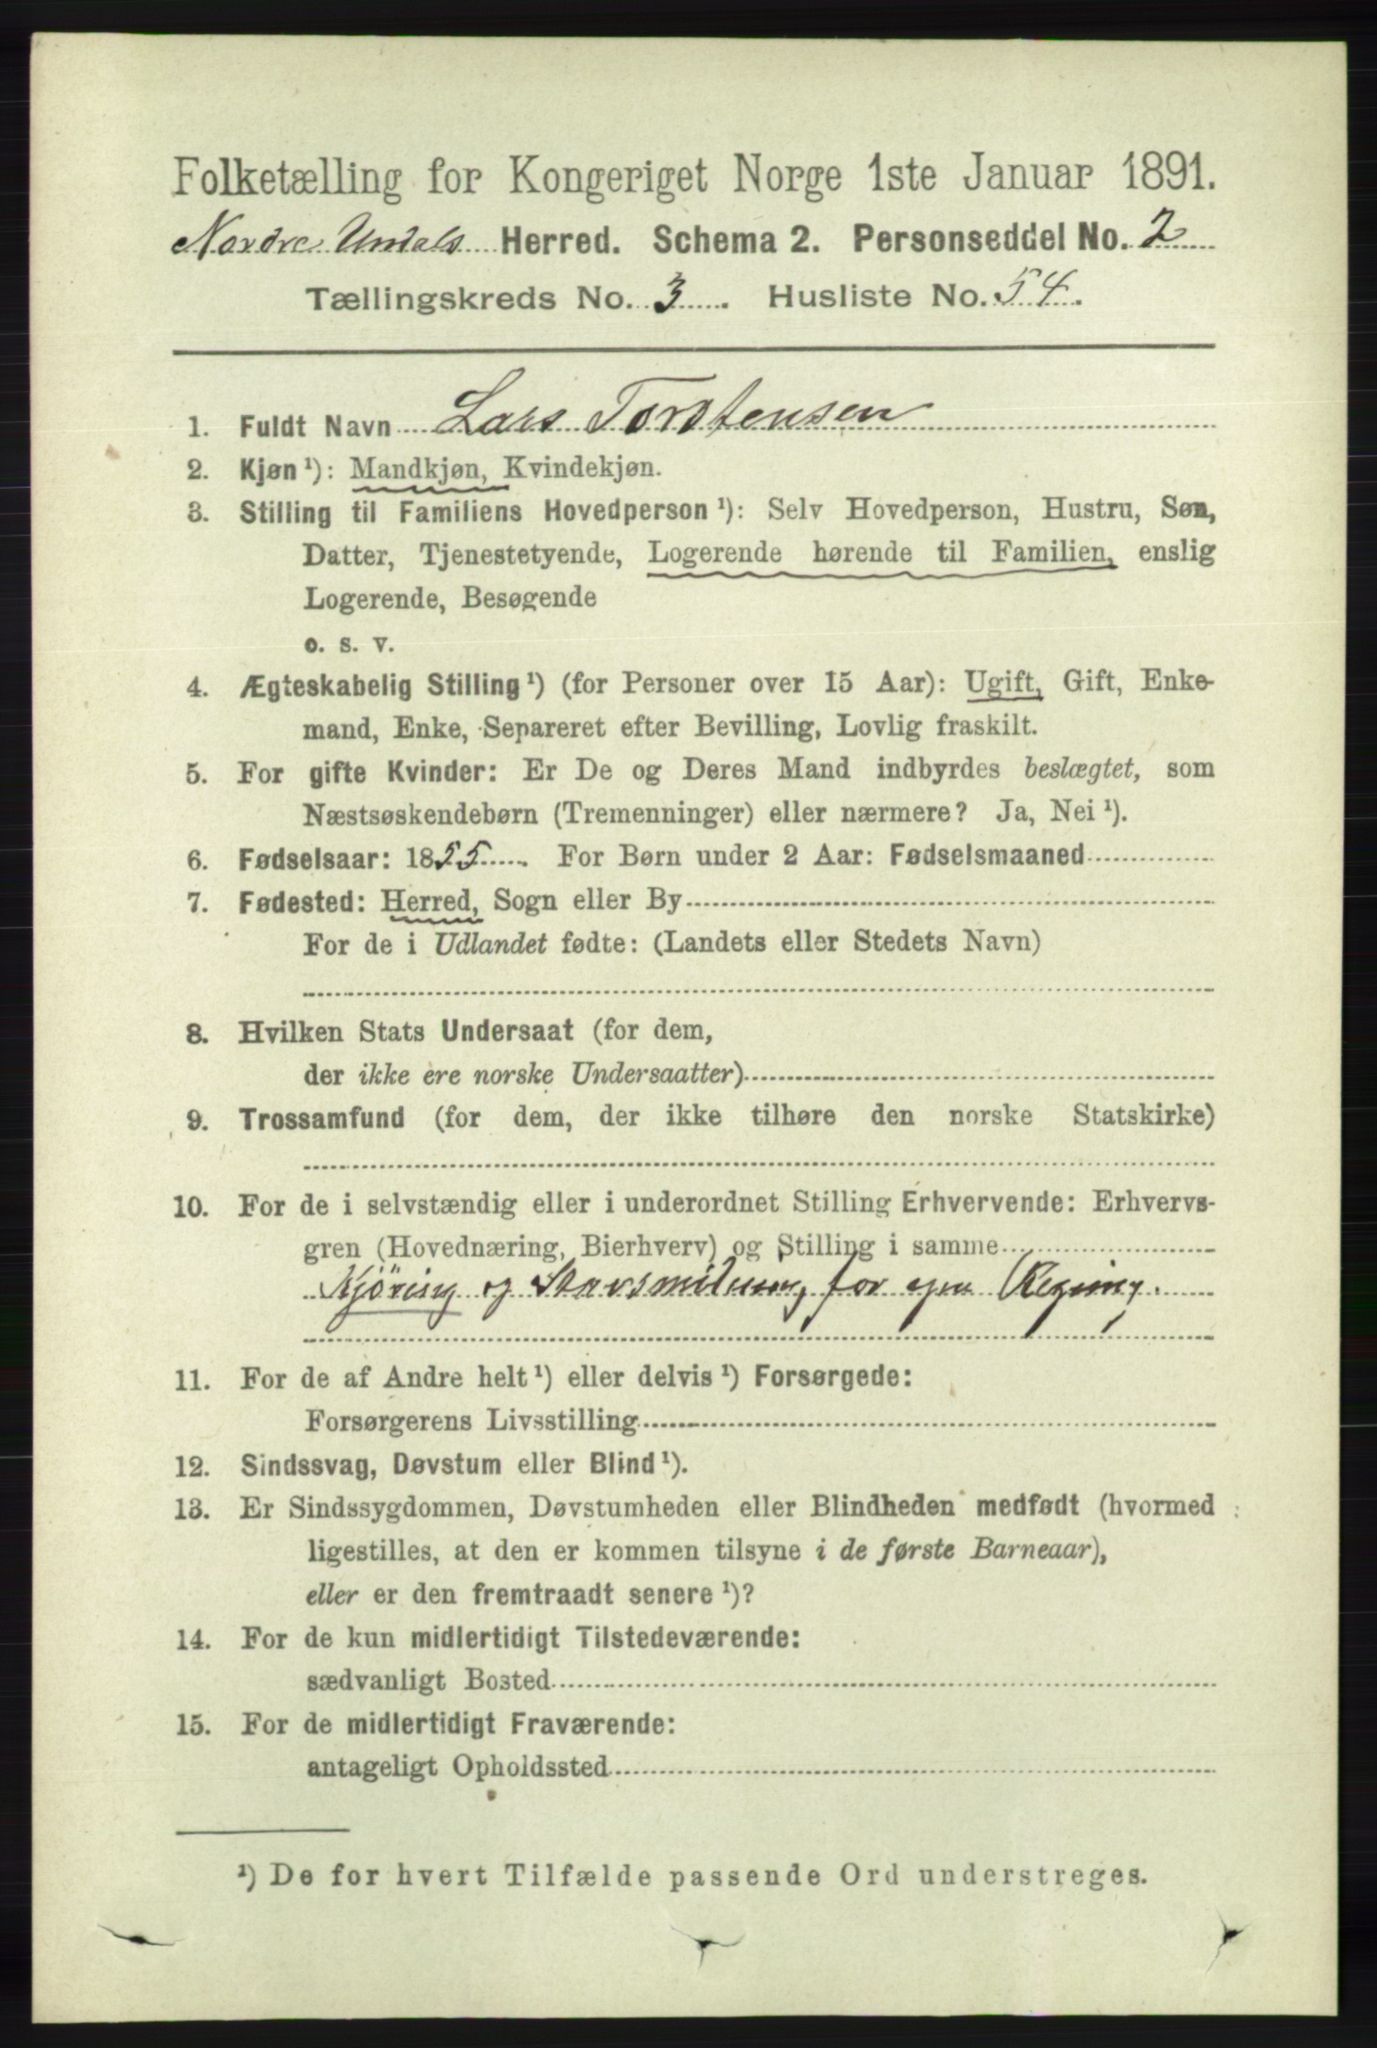 Folketælling for Kongeriget Norge 1ste Januar 1891.
Nordre Undals Herred. Schema 2. Personseddel No. 2
Tællingskreds No. 3. Husliste No. 54.
1. Fuldt Navn Lars Torstensen
2. Kjøn ¹): Mandkjøn, Kvindekjøn.
3. Stilling til Familiens Hovedperson ¹): Selv Hovedperson, Hustru, Søn,
Datter, Tjenestetyende, Logerende hørende til Familien, enslig
Logerende, Besøgende
o. s. v.
4. Ægteskabelig Stilling ¹) (for Personer over 15 Aar): Ugift, Gift, Enke-
mand, Enke, Separeret efter Bevilling, Lovlig fraskilt.
5. For gifte Kvinder: Er De og Deres Mand indbyrdes beslægtet, som
Næstsøskendebørn (Tremenninger) eller nærmere? Ja, Nei ¹).
6. Fødselsaar: 1855. For Børn under 2 Aar: Fødselsmaaned
7. Fødested: Herred, Sogn eller By
For de i Udlandet fødte: (Landets eller Stedets Navn)
8. Hvilken Stats Undersaat (for dem,
der ikke ere norske Undersaatter)
9. Trossamfund (for dem, der ikke tilhøre den norske Statskirke)
10. For de i selvstændig eller i underordnet Stilling Erhvervende: Erhvervs-
gren (Hovednæring, Bierhverv) og Stilling i samme
Kjöring og for egen Regning.
11. For de af Andre helt ¹) eller delvis ¹) Forsørgede:
Forsørgerens Livsstilling
12. Sindssvag, Døvstum eller Blind ¹).
13. Er Sindssygdommen, Døvstumheden eller Blindheden medfødt (hvormed
ligestilles, at den er kommen tilsyne i de første Barneaar),
eller er den fremtraadt senere ¹)?
14. For de kun midlertidigt Tilstedeværende:
sædvanligt Bosted
15. For de midlertidigt Fraværende:
antageligt Opholdssted
¹) De for hvert Tilfælde passende Ord understreges.